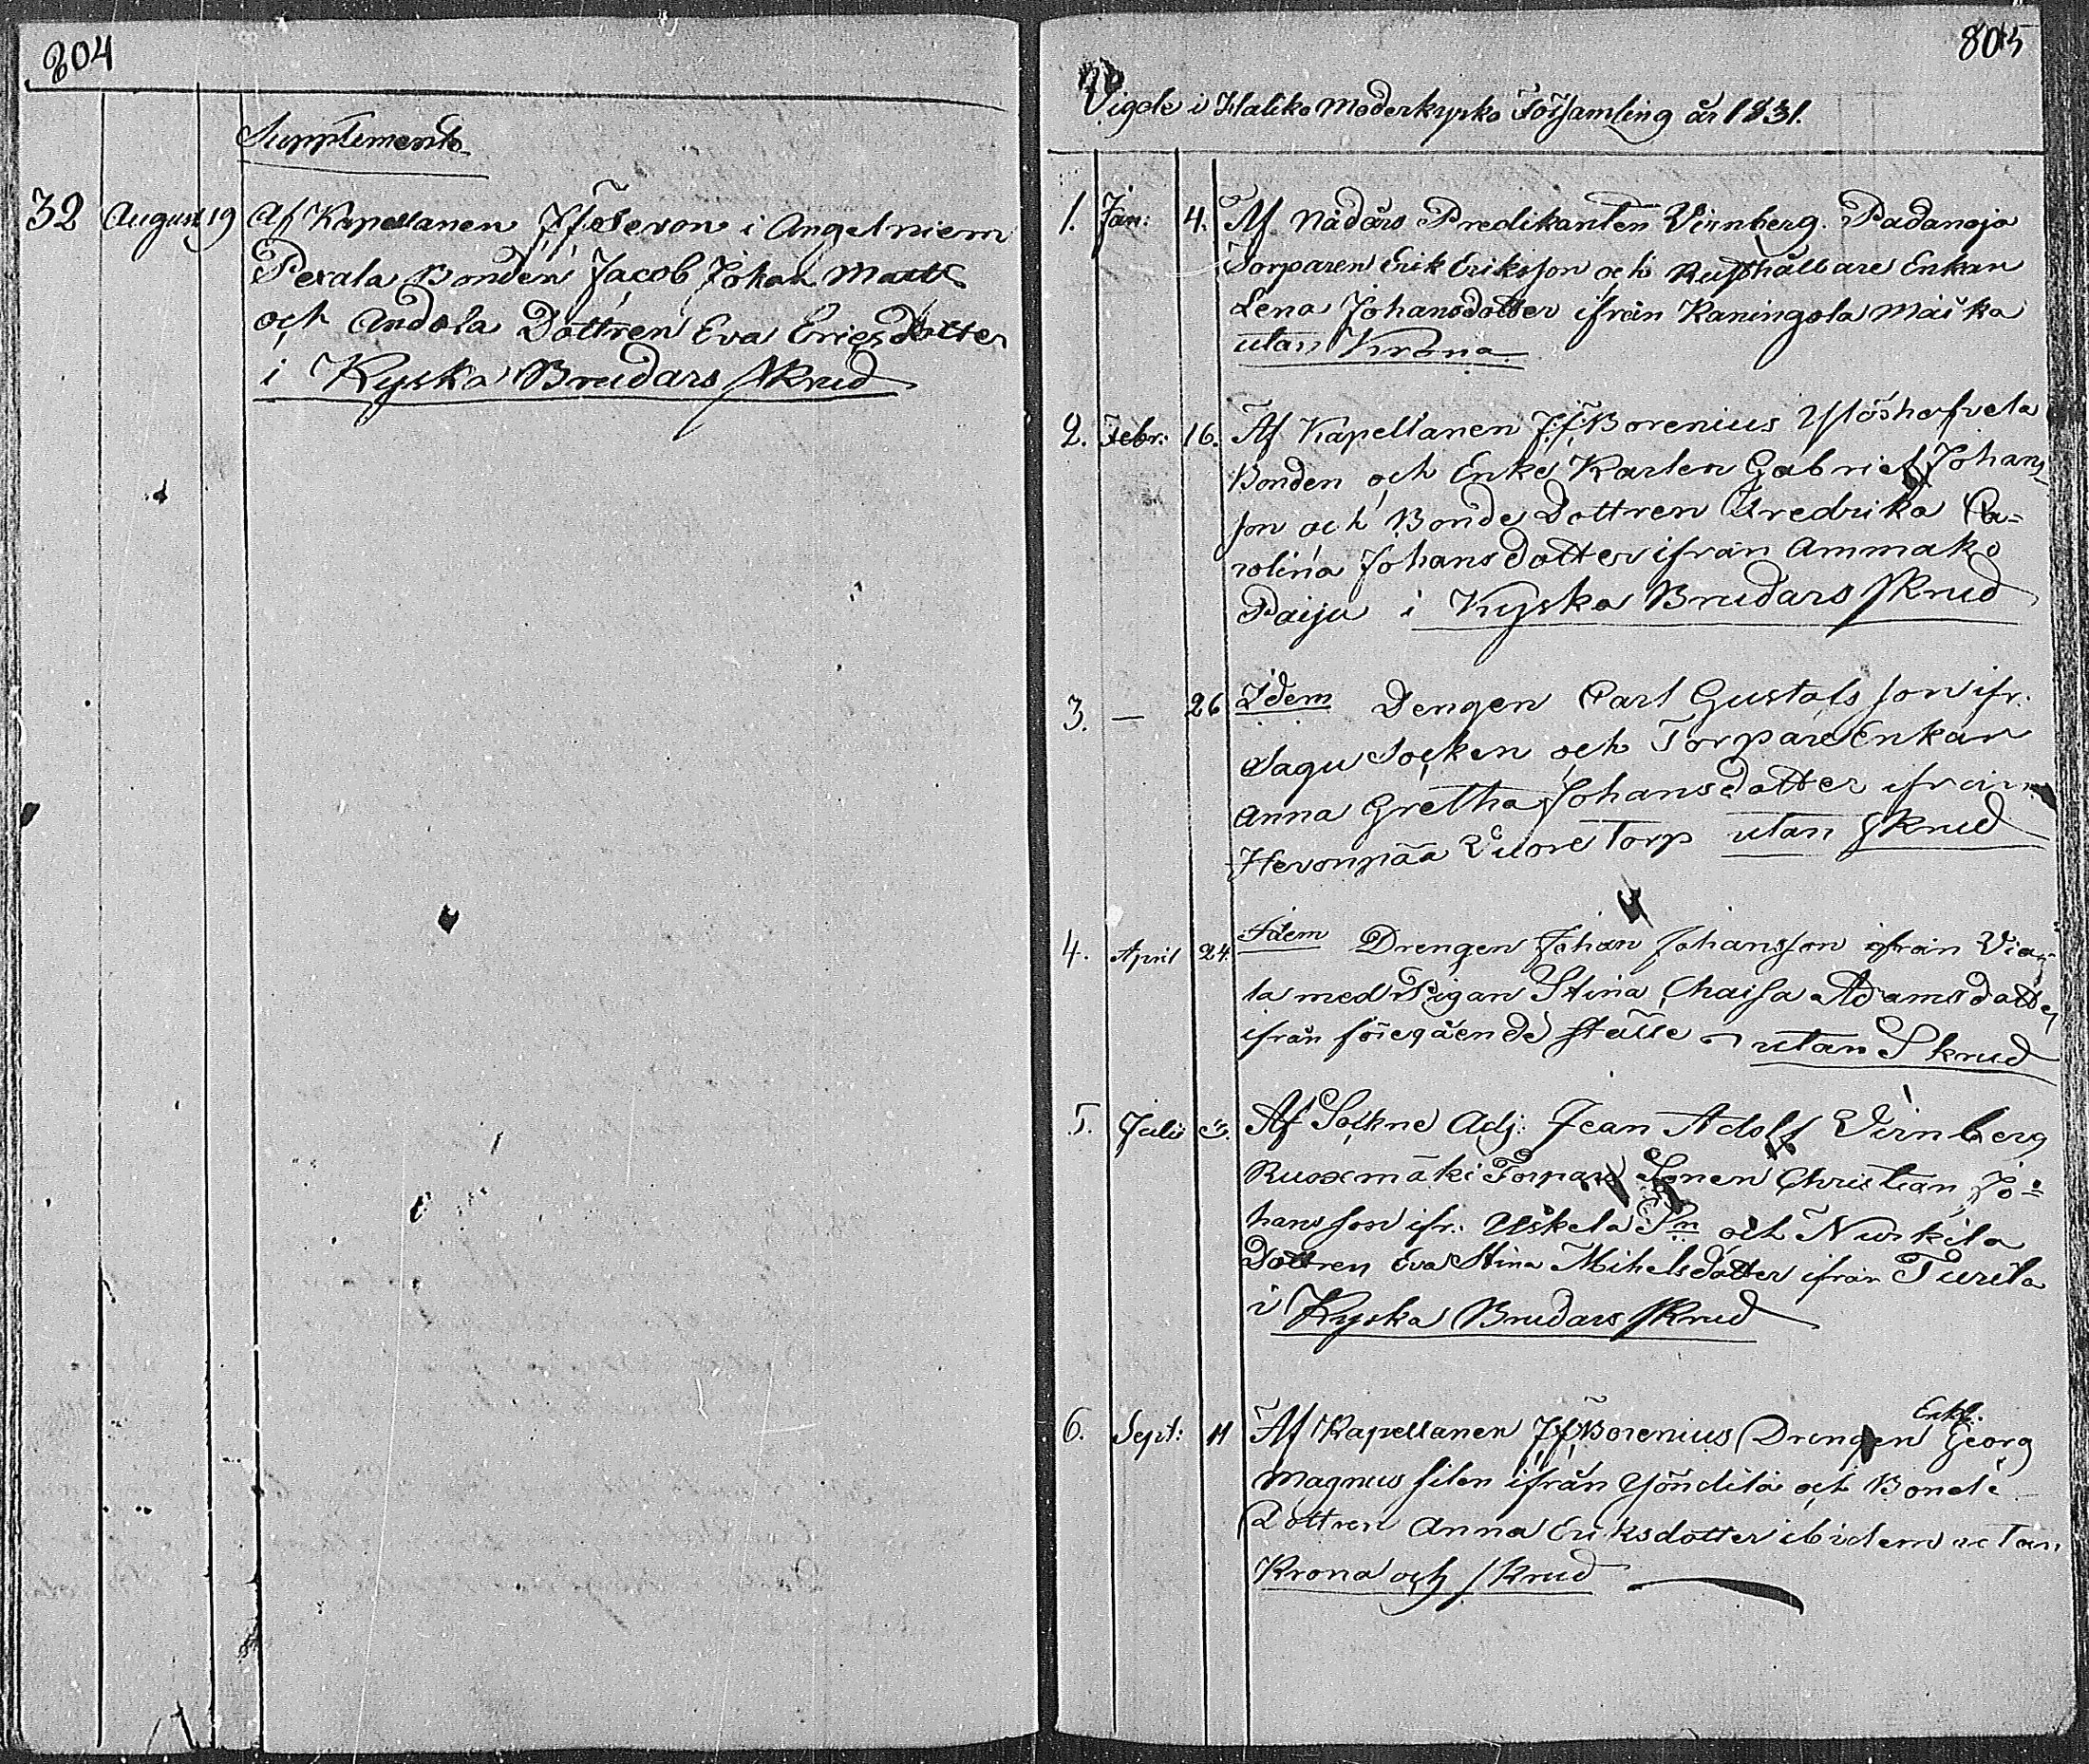 804
Supplement
32 August 19 Af Kapellanen J F Oleson i Angelniemi
Pexala Bonden Jacob Johan Matts
och Andola Dottren Eva Ericsdotter
i Kyska Brudars skrud
805
Vigde i Haliko Moderkyrko Församling år 1831.
1. Jan: 4. Af Nådårs Predikanten Virnberg. Padanoja
Torparen Erik Eriksson och Rusthållare Enkan
Lena Johansdotter ifrån Kaningola Maiko
utan Krona
2. Febr: 16. Af Kapellanen J F Borenius Ylöshafvela
Bonden och Enke Karlen Gabriel Johans
son och Bonde Dottren Fredrika Ca-
rolina Johansdotter ifrån Ammako
Paiju i Kyska Brudars skrud
3. — 26 Idem Dengen Carl Gustafsson ifr.
Sagu Socken och Torpare Enkan
Anna Gretha Johansdotter ifrån
Hevonpää Vuore Torp utan skrud
4. April 24. Idem Drengen Johan Johansson ifrån Via-
la med Pigan Stina Chaisa Adamsdotter
ifrån föregående ställe utan Skrud
5. Julii 3. Af Sockne Adj: Jean Adolf Virnberg
Ruoxmäki Torpare Sonen Christian Jo-
hansson ifr. Uskela Sn och Nurkila
Dottren Eva Stina Mihelsdotter ifrån Turila
i Kyska Brudars skrud
6. Sept: 11 Af Kapellanen J F Borenius Drengen Enkl. Georg
Magnus silen ifrån Yöndilä och Bonde
Dottren Anna Eriksdotter ibidem utan
Krona och skrud